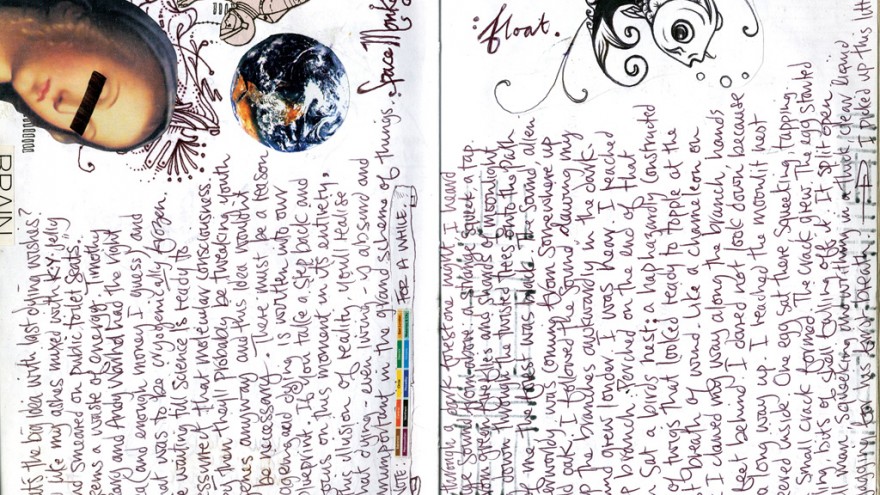 BRAIN
ts the big idea with last dying wishes?
like my ashes mixed with K.Y. Jelly
nd smeared on public toilet seats.
eems a waste of energy. Timothy
ary and Andy Warhol had the right
ea (and enough money, I guess) and
hat was to be cryogenically frozen,
e waiting till science is ready to
esurrect that molecular consciousness.
y then they'll probably be tweaking youth
enes anyway and this idea wouldn't
be necessary. There must be a reason
ageing and dying is written into our
blueprint. If you take a step back and
ocus on this moment in its entirety,
this illusion of reality, you'll realise
hat dying - even living is absurd and
unimportant in the grand scheme of things.
Space Monk
NOTE: FOR A WHILE.
float.
through a park one night I heard
sound from above: a strange squeet, a tap.
From great turrelles and shards of moonlight
down through the twisted trees onto the path
of me. The noise was inside the sound, alien
erworldly was coming from somewhere up
ld park. I followed the sound, clawing my
up the branches awkwardly in the dark.
und grew louder. I was near. I reached
p branch. Perched on the end of that
h sat a bird's nest: a haphazardly constructed
of twigs that looked ready to topple at the
t breath of wind. Like a chameleon on
I clawed my way along the branch, hands
feet behind. I dared not look down because
a long way up. I reached the moonlit nest
eered inside. One egg sat there squeeting, tapping.
small crack formed. The crack grew. The egg started
ling, bits of shell falling off it. It split open
ll then squeeting and writhing in a thick clear liquid
uggling for his own breath. I picked up this litt